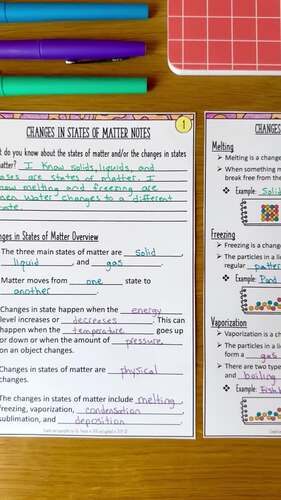 CHANGES IN STATES OF MATTER NOTES
1
t do you know about the states of matter and/or the changes in states
atter? I know solids, liquids, and
ases are states of matter. I
now melting and freezing are
hen water changes to a different
tate.
nges in States of Matter Overview
The three main states of matter are solid
liquid, and gas.
Matter moves from one state to
another
Changes in state happen when the energy
level increases or decreases. This can
happen when the temperature goes up
or down or when the amount of pressure
on an object changes.
Changes in states of matter are physical
changes.
The changes in states of matter include melting,
freezing, vaporization, condensation,
sublimation, and deposition.
CHANGES
Melting
Melting is a change
When something m
break free from the
Example: Solid
Freezing
Freezing is a change
The particles in a li
regular patter
Example: Pond
Vaporization
Vaporization is a ch
The particles in a l
form a gas
There are two type
and boiling
Example: Fishb